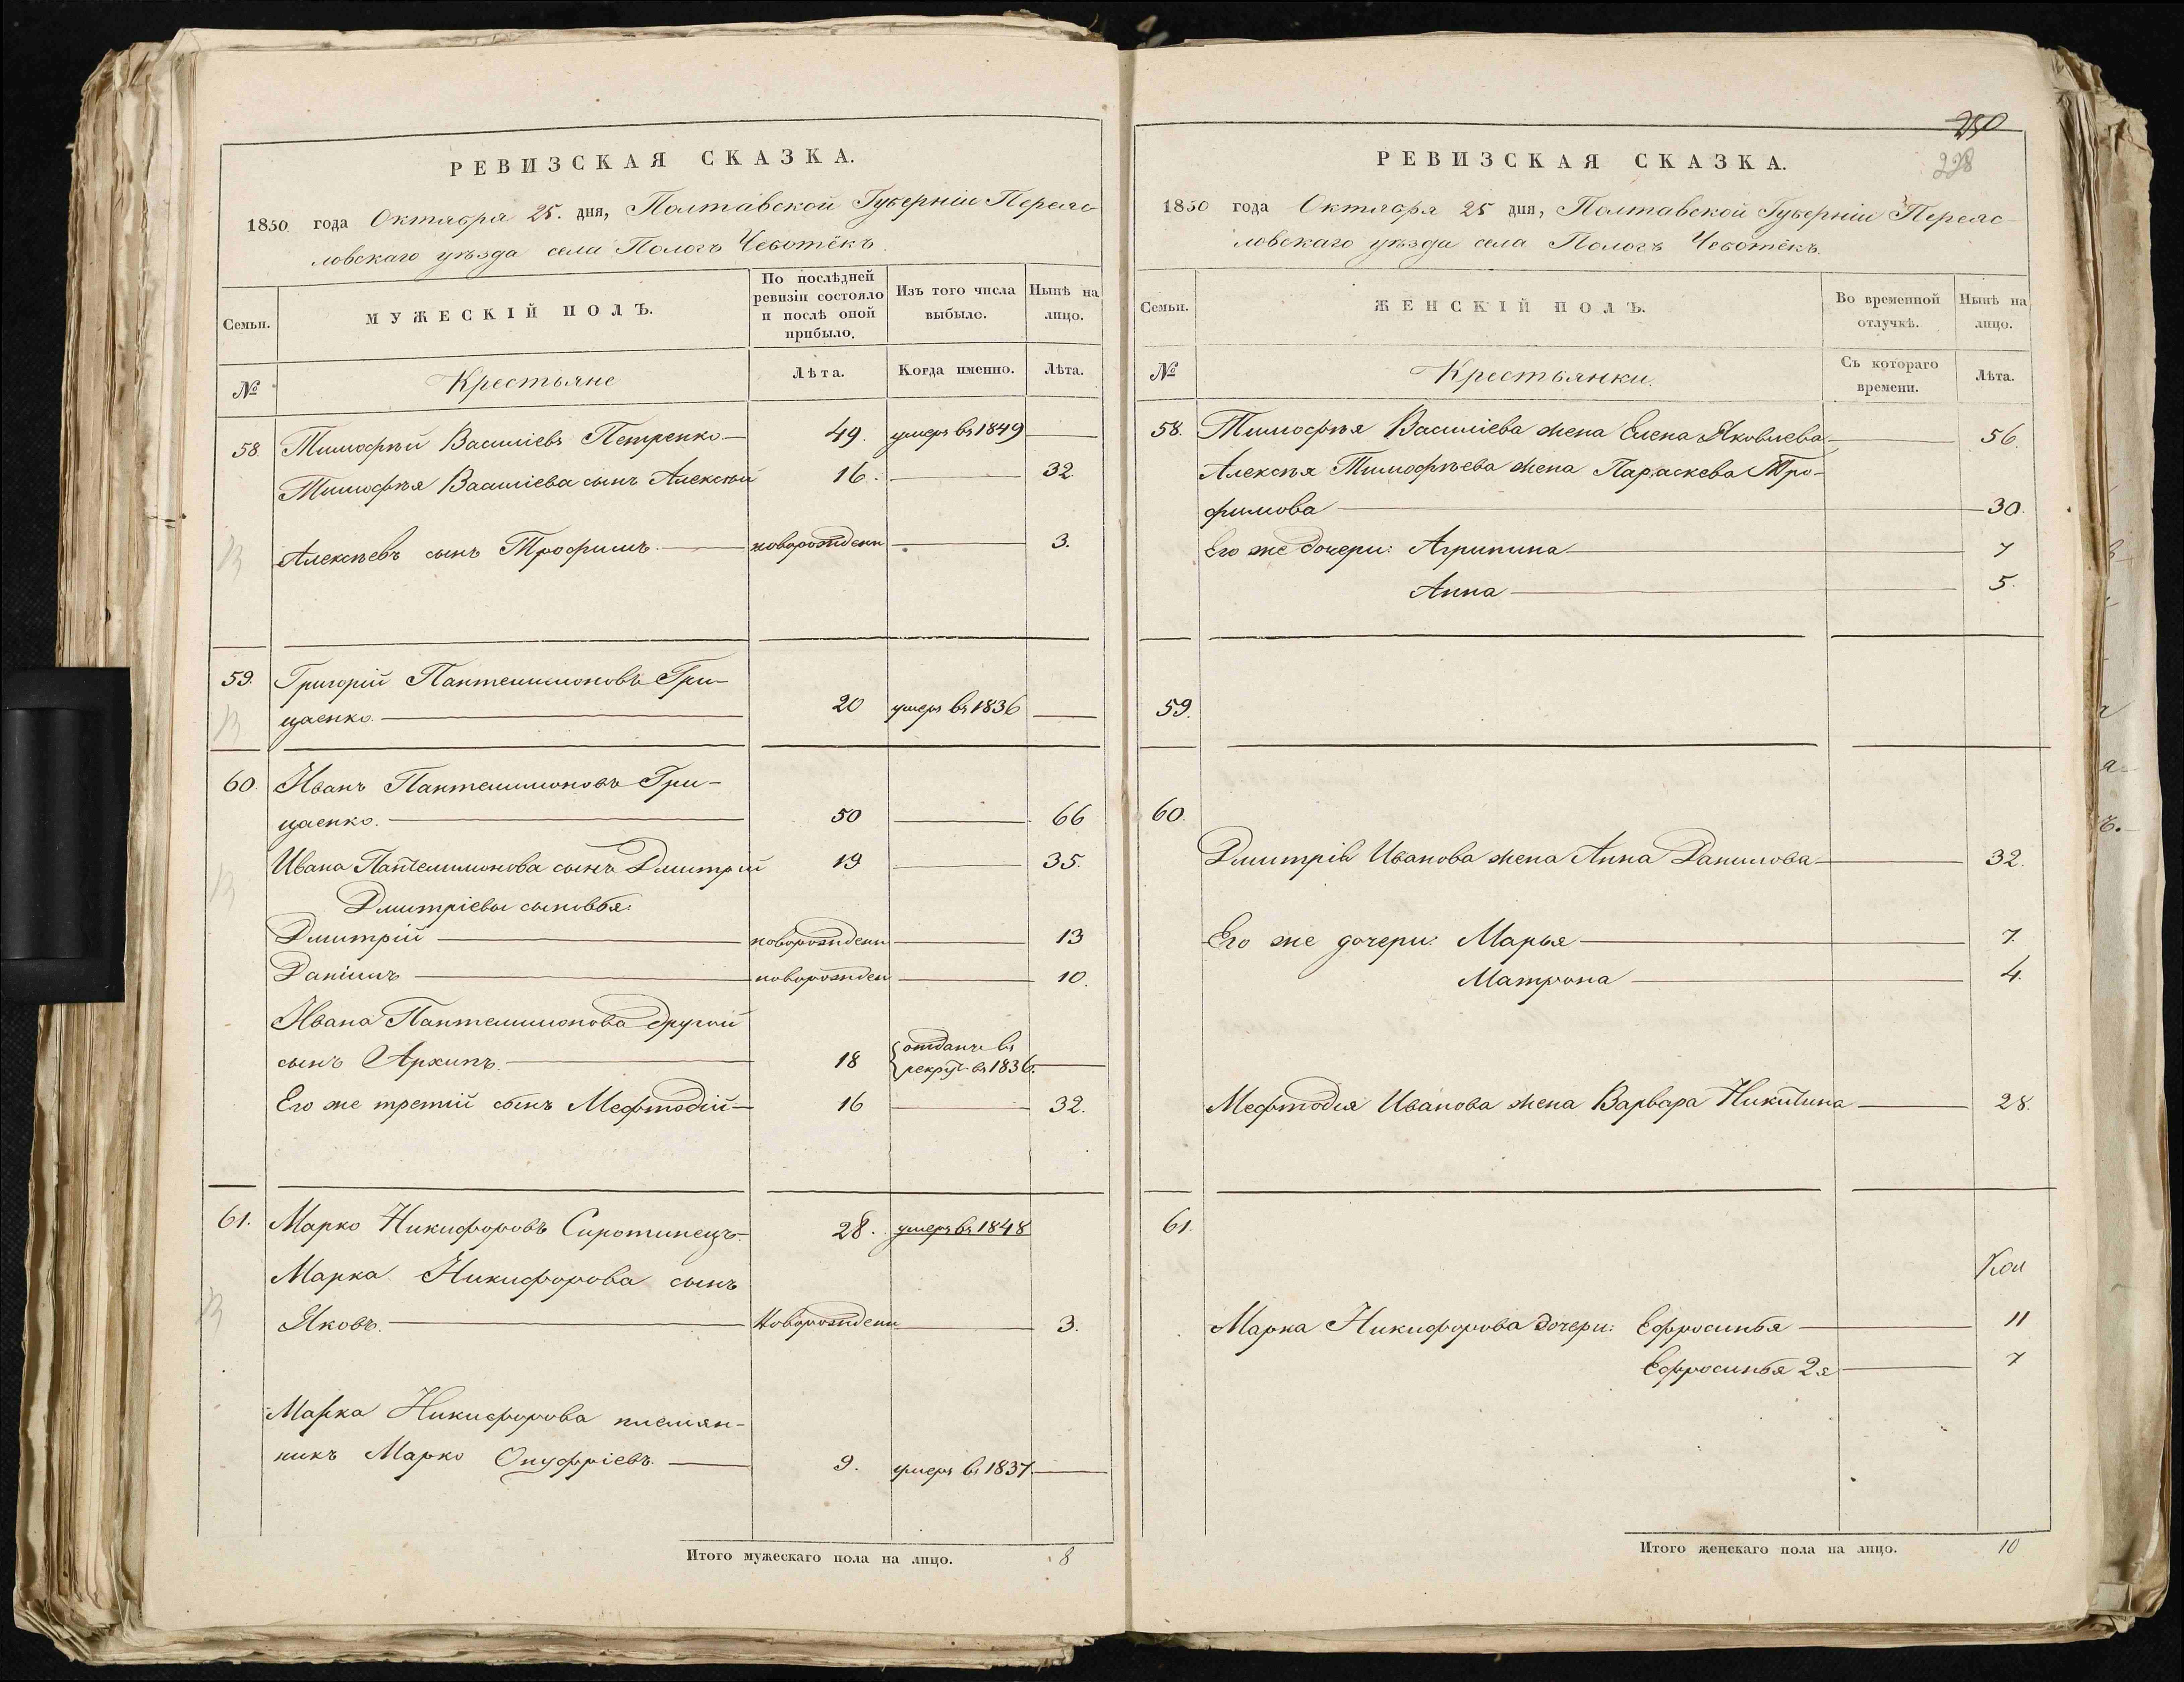 РЕВИЗСКАЯ СКАЗКА.
1850 года Октября 25. дня, Полтавской Губерніи Переяс-
ловскаго уѣзда села Пологъ Чеботёкъ.
Семьи.
МУЖЕСКІЙ ПОЛЪ.
По послѣдней ревизіи состояло и послѣ оной прибыло.
Изъ того числа выбыло.
Нынѣ на лицо.
№
Крестьяне
Лѣта.
Когда именно.
Лѣта.
58 Тимофѣй Василіевъ Петренко — 49. умеръ въ 1849 —
Тимофѣя Василіева сынъ Алексѣй 16. — 32.
Алексѣевъ сынъ Трофимъ. — новорожденн — 3.
59. Григорій Пантелимоновъ Гри-
цаенко. — 20 умеръ въ 1836 —
60. Иванъ Пантелимоновъ Гри-
цаенко. — 50 — 66
Ивана Пантелимонова сынъ Дмитрій 19 — 35.
Дмитріевы сыновья:
Дмитрій — новорожденн — 13
Даніилъ — новорожден — 10.
Ивана Пантелимонова другой
сынъ Архипъ. — 18 отданъ въ
рекрут. въ 1836. —
Его же третій сынъ Мефтодій — 16 — 32.
61. Марко Никифоровъ Сиротинецъ. 28. умеръ въ 1848
Марка Никифорова сынъ
Яковъ. — Новорожденн — 3.
Марка Никифорова племян-
никъ Марко Онуфріевъ. — 9. умеръ въ 1837. —
Итого мужескаго пола на лицо. 8
250
228
РЕВИЗСКАЯ СКАЗКА.
1850 года Октября 25 дня, Полтавской Губерніи Переяс-
ловскаго уѣзда села Пологъ Чеботёкъ.
Семьи.
ЖЕНСКІЙ ПОЛЪ.
Во временной отлучкѣ.
Нынѣ на лицо.
№
Крестьянки.
Съ котораго времени.
Лѣта.
58. Тимофѣя Василіева жена Елена Яковлева — 56.
Алексѣя Тимофѣева жена Параскева Тро-
фимова — 30.
Его же дочери: Агрипина — 7
Анна — 5.
59.
60.
Дмитрія Иванова жена Анна Данилова — 32.
Его же дочери: Марья — 7.
Матрона — 4.
Мефтодія Иванова жена Варвара Никитина — 28.
61.
Марка Никифорова дочери: Ефросинья — 11
Ефросинья 2я — 7
Итого женскаго пола на лицо. 10